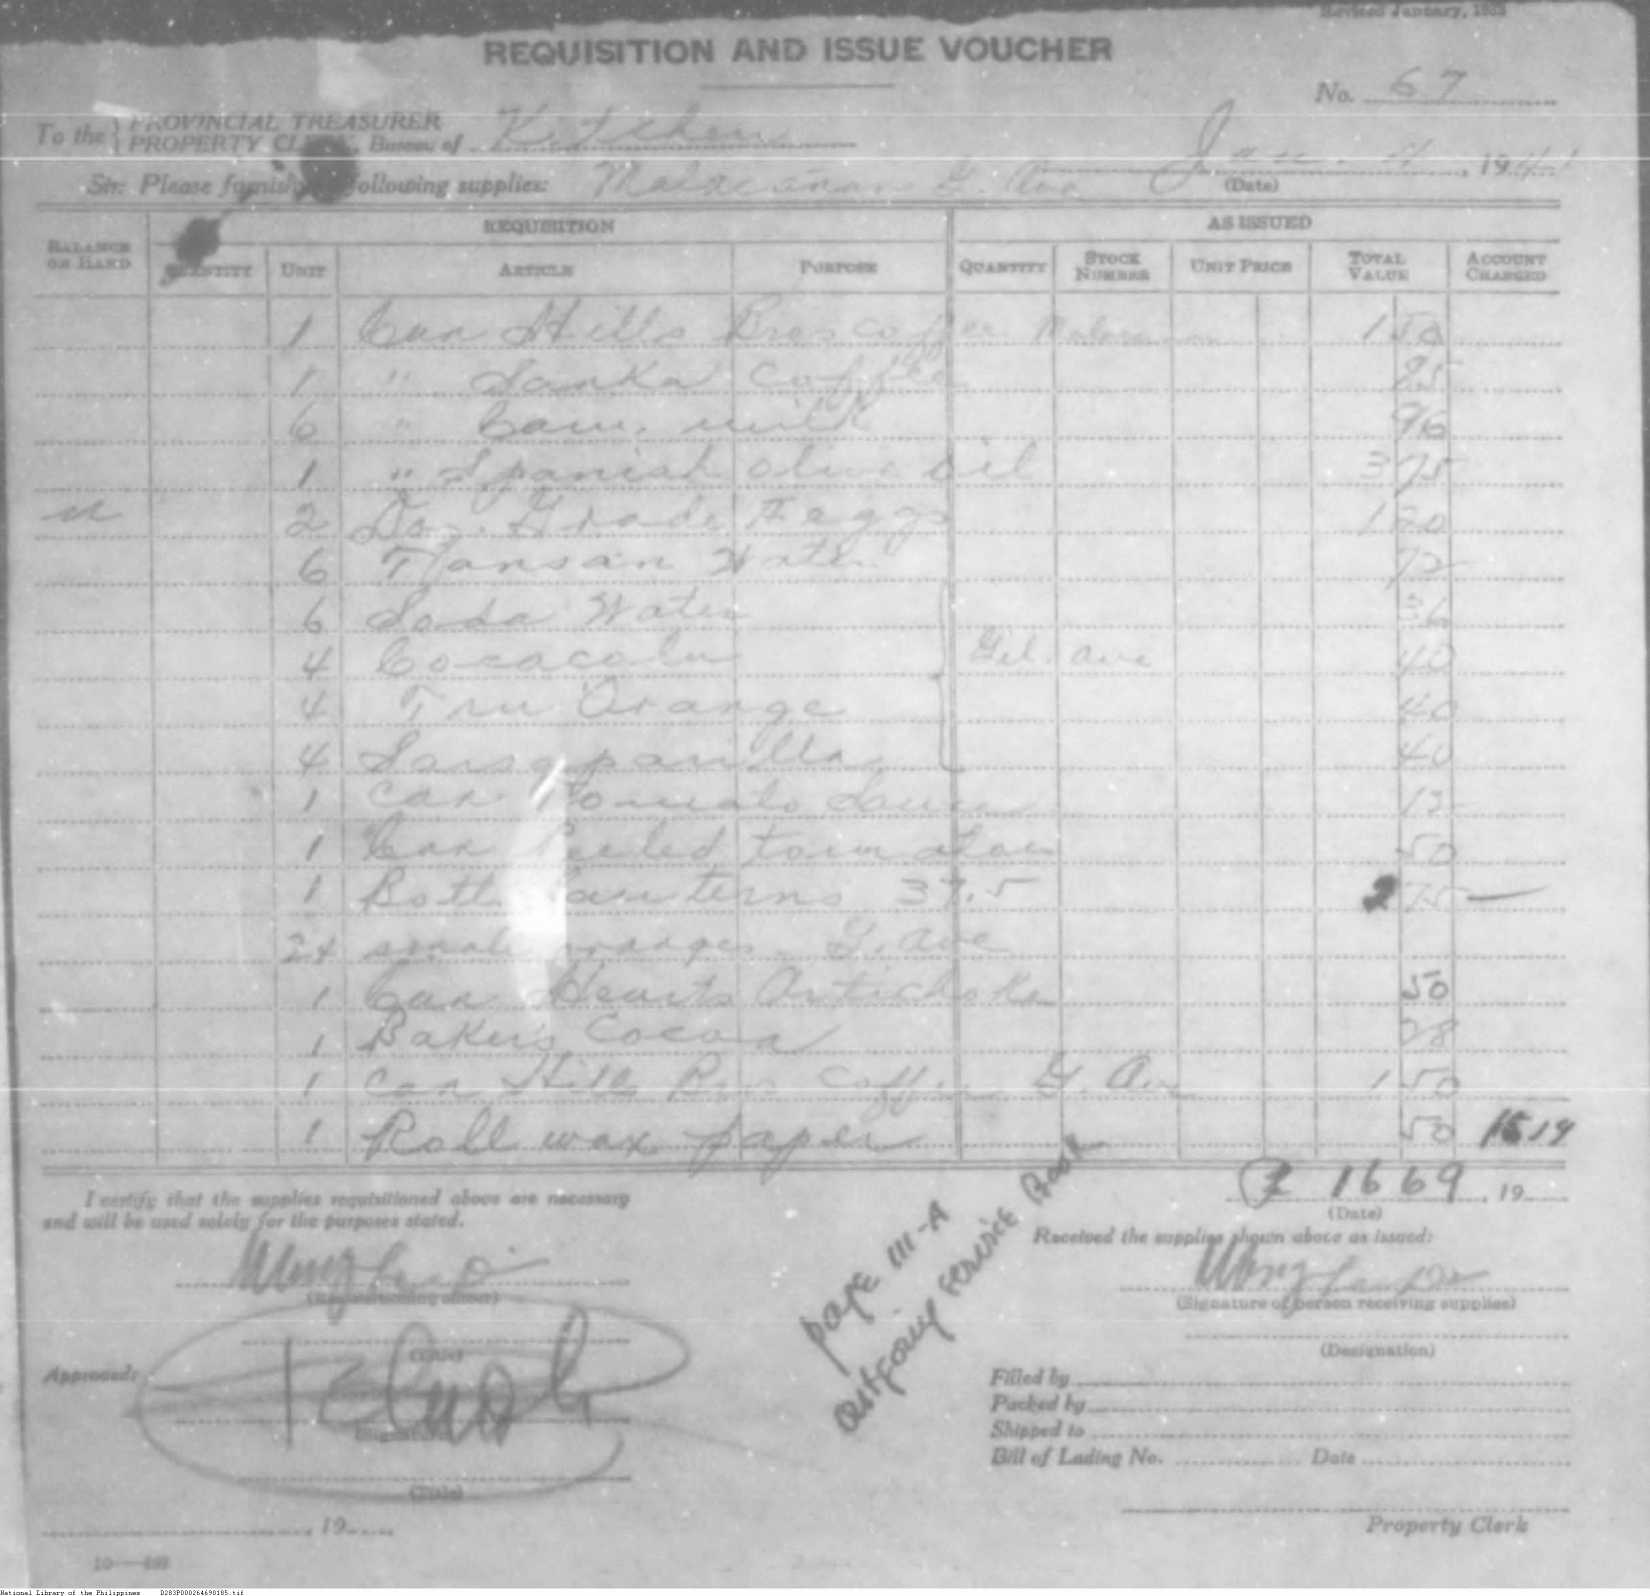 Revised January, 1923
REQUISITION AND ISSUE VOUCHER
No. 67
To the PROVINCIAL TREASURER
PROPERTY CLERK, Bureau of Kitchen
Jan. 4, 1941
(Date)
Sir: Please furnish following supplies: Malacañan G. Ave
REQUISITION AS ISSUED
BALANCE ON HAND QUANTITY UNIT ARTICLE PURPOSE QUANTITY STOCK NUMBER UNIT PRICE TOTAL VALUE ACCOUNT CHARGED
1 Can Hills Bros coffee 1 50
1 " Sanka Coffee 85
6 " Cam. milk 96
1 " Spanish olive oil 3 75
2 Doz. Grade eggs 1 20
6 Tansan Water 72
6 Soda Water 36
4 Cocacola Gil. Ave 40
4 Tru Orange 40
4 Sarsaparilla 40
1 can Tomato 12
1 Can Peeled tomatoes 50
1 37.5 2 75 —
24 small oranges G. Ave
1 Can Hearts Artichoke 50
1 Bakers Cocoa 28
1 can Hills Bros Coffee G. Ave 1 50
1 Roll wax paper 50 15 19
16 69, 19
(Date)
I certify that the supplies requisitioned above are necessary
and will be used solely for the purposes stated.
Received the supplies shown above as issued:
(Requisitioning officer)
(Signature of person receiving supplies)
page 111-A
outgoing service Book
(Title)
(Designation)
Approved:
Filled by
Packed by
(Signature)
Shipped to
Bill of Lading No. Date
(Title)
, 19
Property Clerk
National Library of the Philippines D283P000264690105.tif